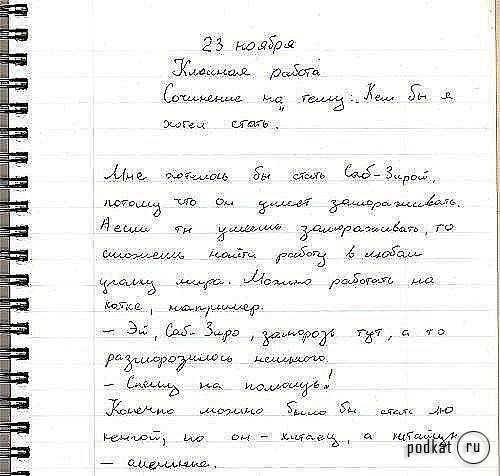 23 ноября
Классная работа
Сочинение на тему: „Кем бы я
хотел стать.
Мне хотелось бы стать Саб-Зирой,
потому что он умеет замораживать.
А если ты умеешь замораживать, то
сможешь найти работу в любом
уголку мира. Можно работать на
катке, например.
– Эй, Саб-Зиро, заморозь тут, а то
разморозилось немного.
– Спешу на помощь!
Конечно можно было бы стать Лю
кенгой, но он – китаец, а китайцы
–
podkat ru